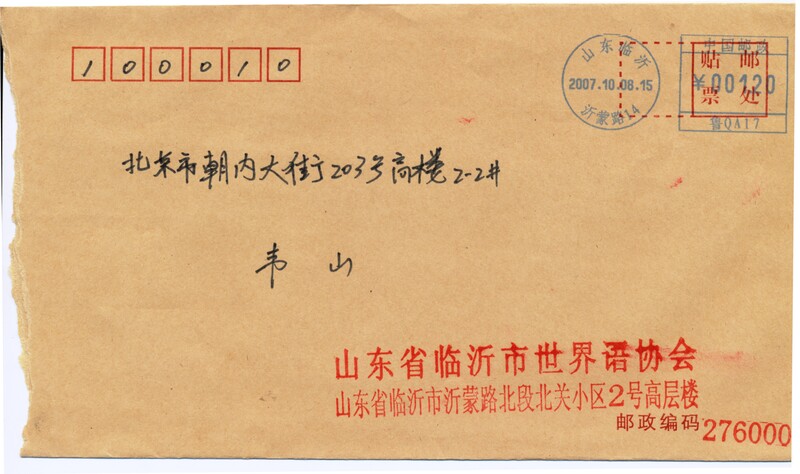 100010
山东临沂
2007.10.08.15
沂蒙路14
中国邮政
¥00120
鲁QA17
贴邮
票处
北京市朝内大街203号高楼2-2#
韦 山
山东省临沂市世界语协会
山东省临沂市沂蒙路北段北关小区2号高层楼
邮政编码 276000